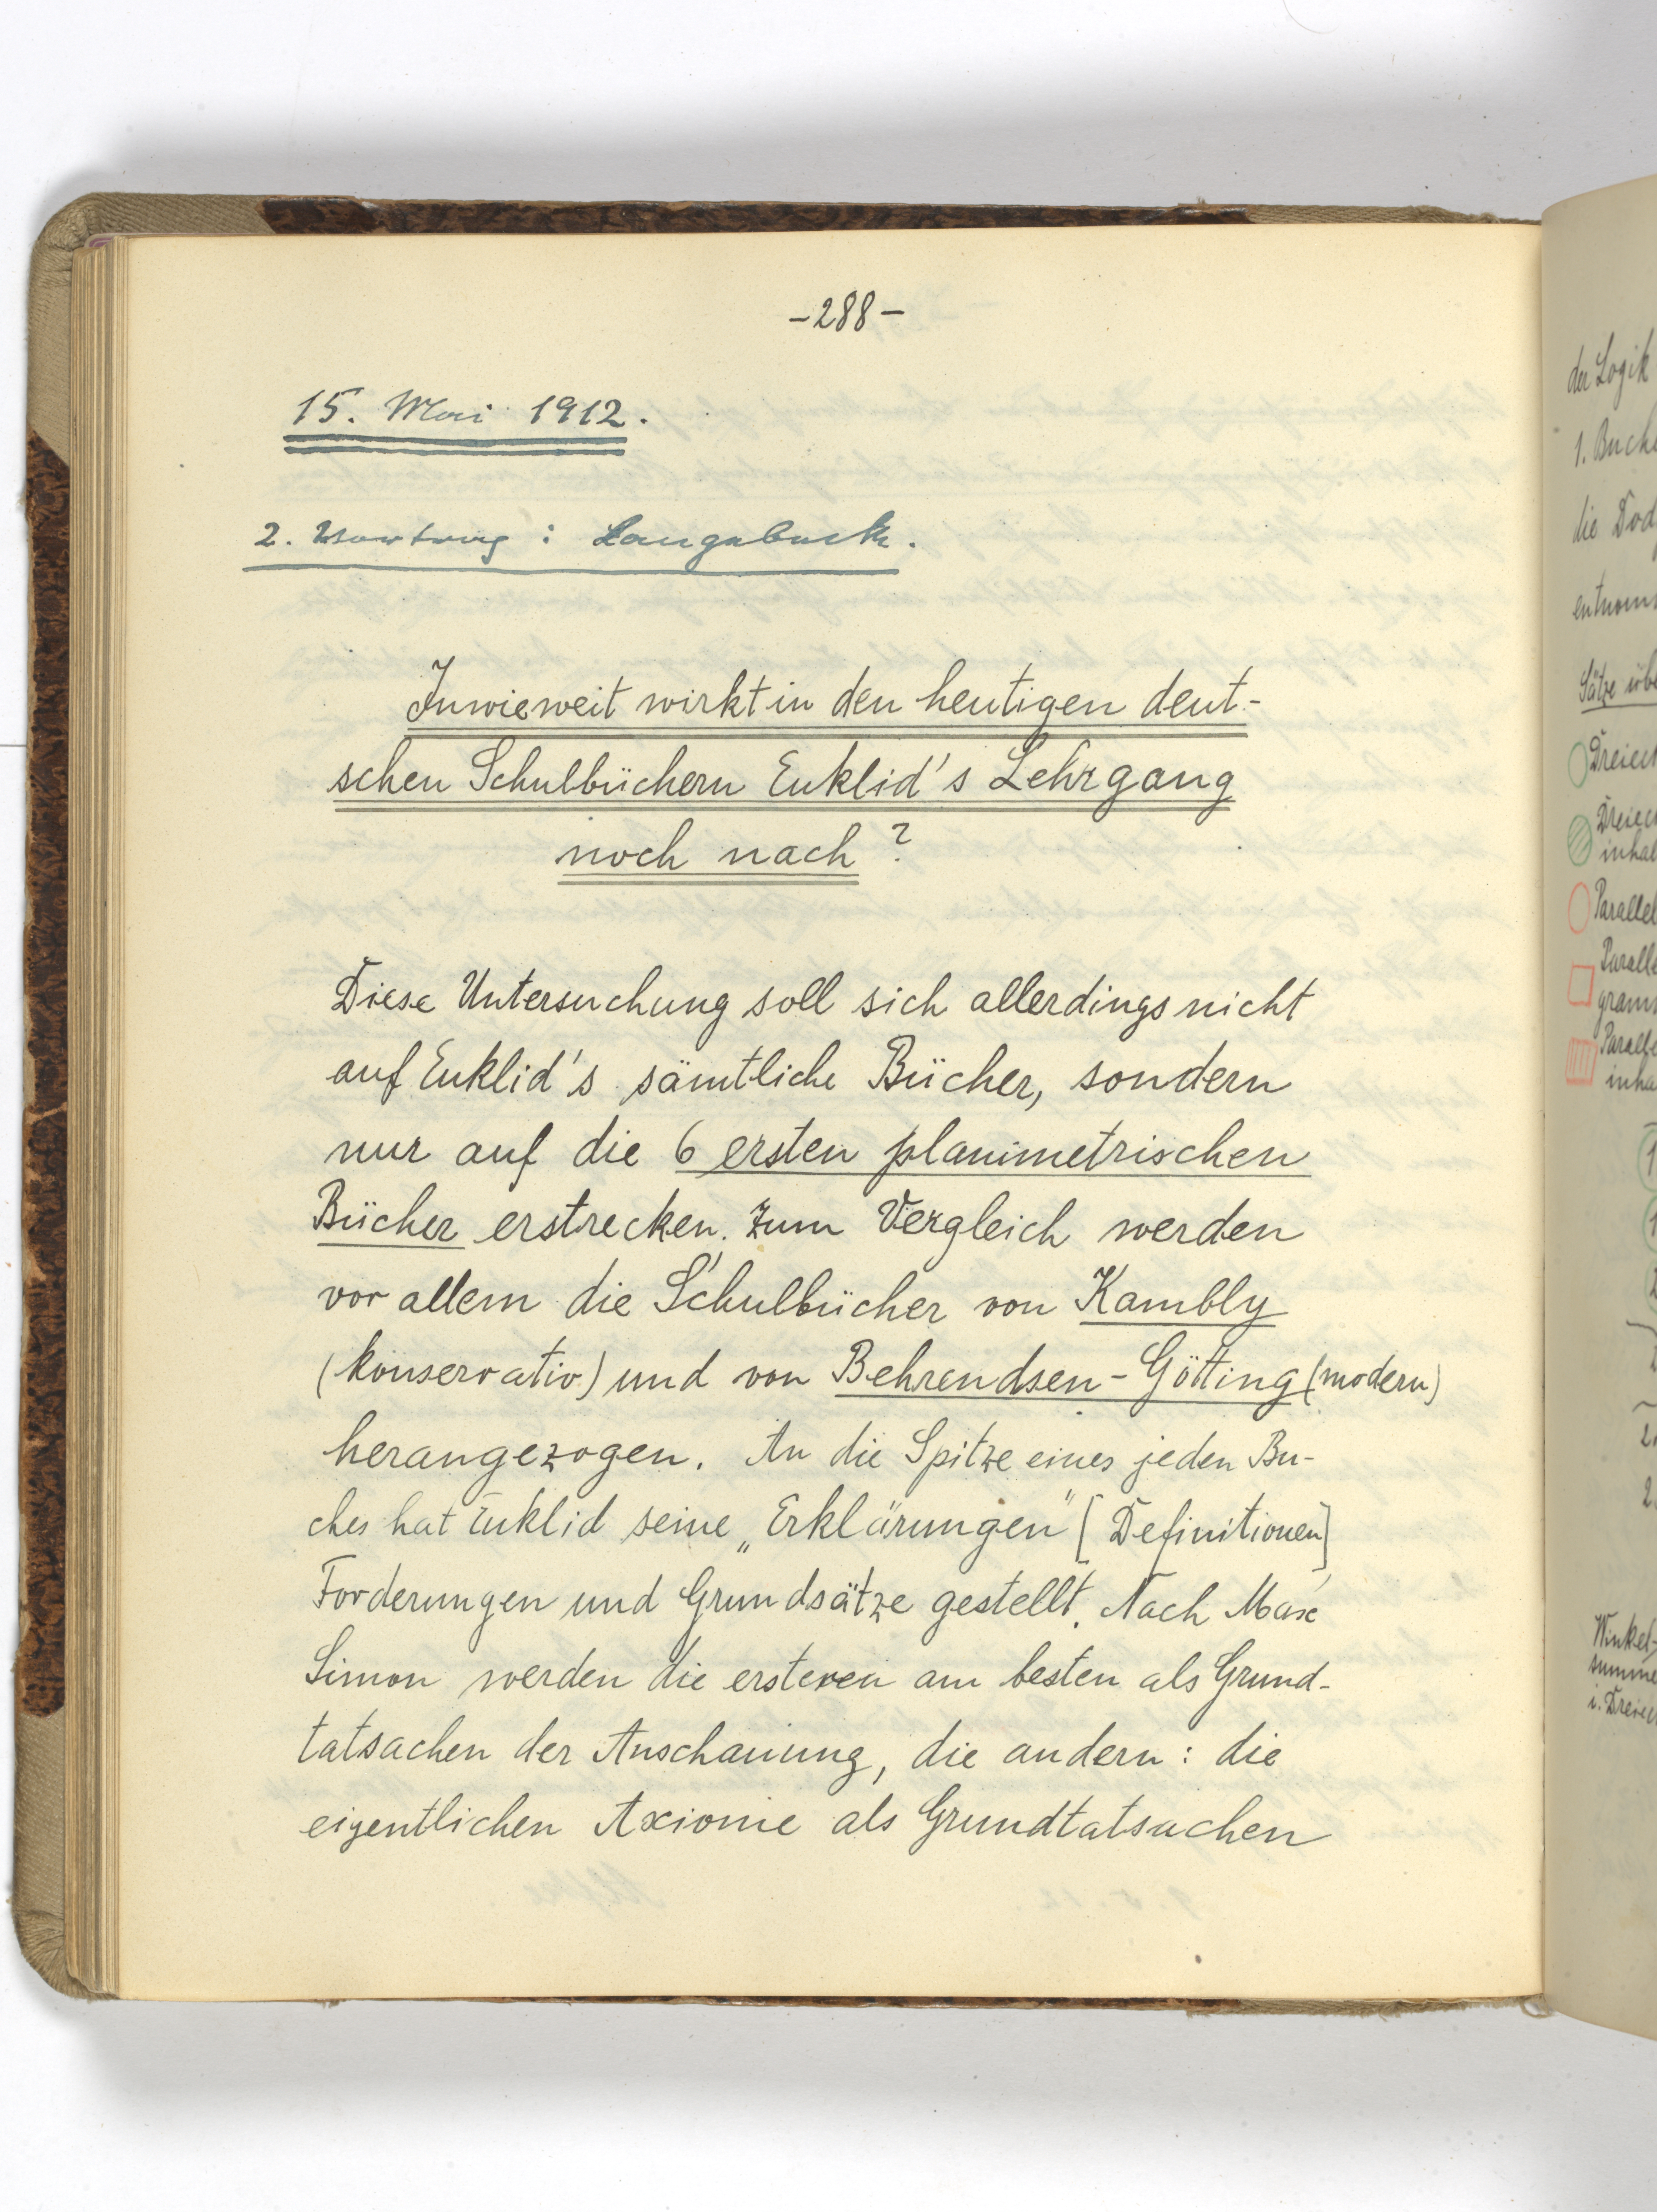 -288-
15. Mai 1912.
2. Vortrag: Langebeck.
Inwieweit wirkt in den heutigen deut-
schen Schulbüchern Euklid's Lehrgang
noch nach?
Diese Untersuchung soll sich allerdings nicht
auf Euklid's sämtliche Bücher, sondern
nur auf die 6 ersten planimetrischen
Bücher erstrecken. Zum Vergleich werden
vor allem die Schulbücher von Kambly
(konservativ) und von Behrendsen-Götting (modern)
herangezogen. An die Spitze eines jeden Bu-
ches hat Euklid seine „Erklärungen" [Definitionen]
Forderungen und Grundsätze gestellt. Nach Max
Simon werden die ersteren am besten als Grund-
tatsachen der Anschauung, die andern: die
eigentlichen Axiome als Grundtatsachen
der Logik
1. Buch
die
Sätze
Dreieck
Winkel-
summe